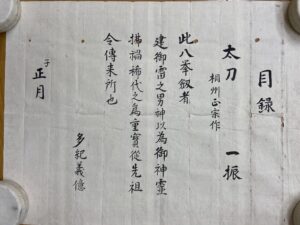 目録
太刀 一振
相州正宗作
此八峯剱者
建御雷之男神以為御神霊
揚福稀代之為重寳從先祖
令傳来所也
子
正月
多紀義億